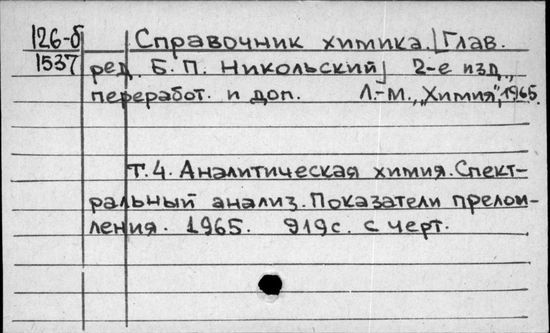 126-б Справочник химика.[Глав.
1537 ред. Б. П. Никольский] 2-е изд.,
переработ. и доп. Л.-М., „Химия", 1965.
т.4. Аналитическая химия. Спект-
ральный анализ. Показатели прелом-
ления. 1965. 919с. с черт.